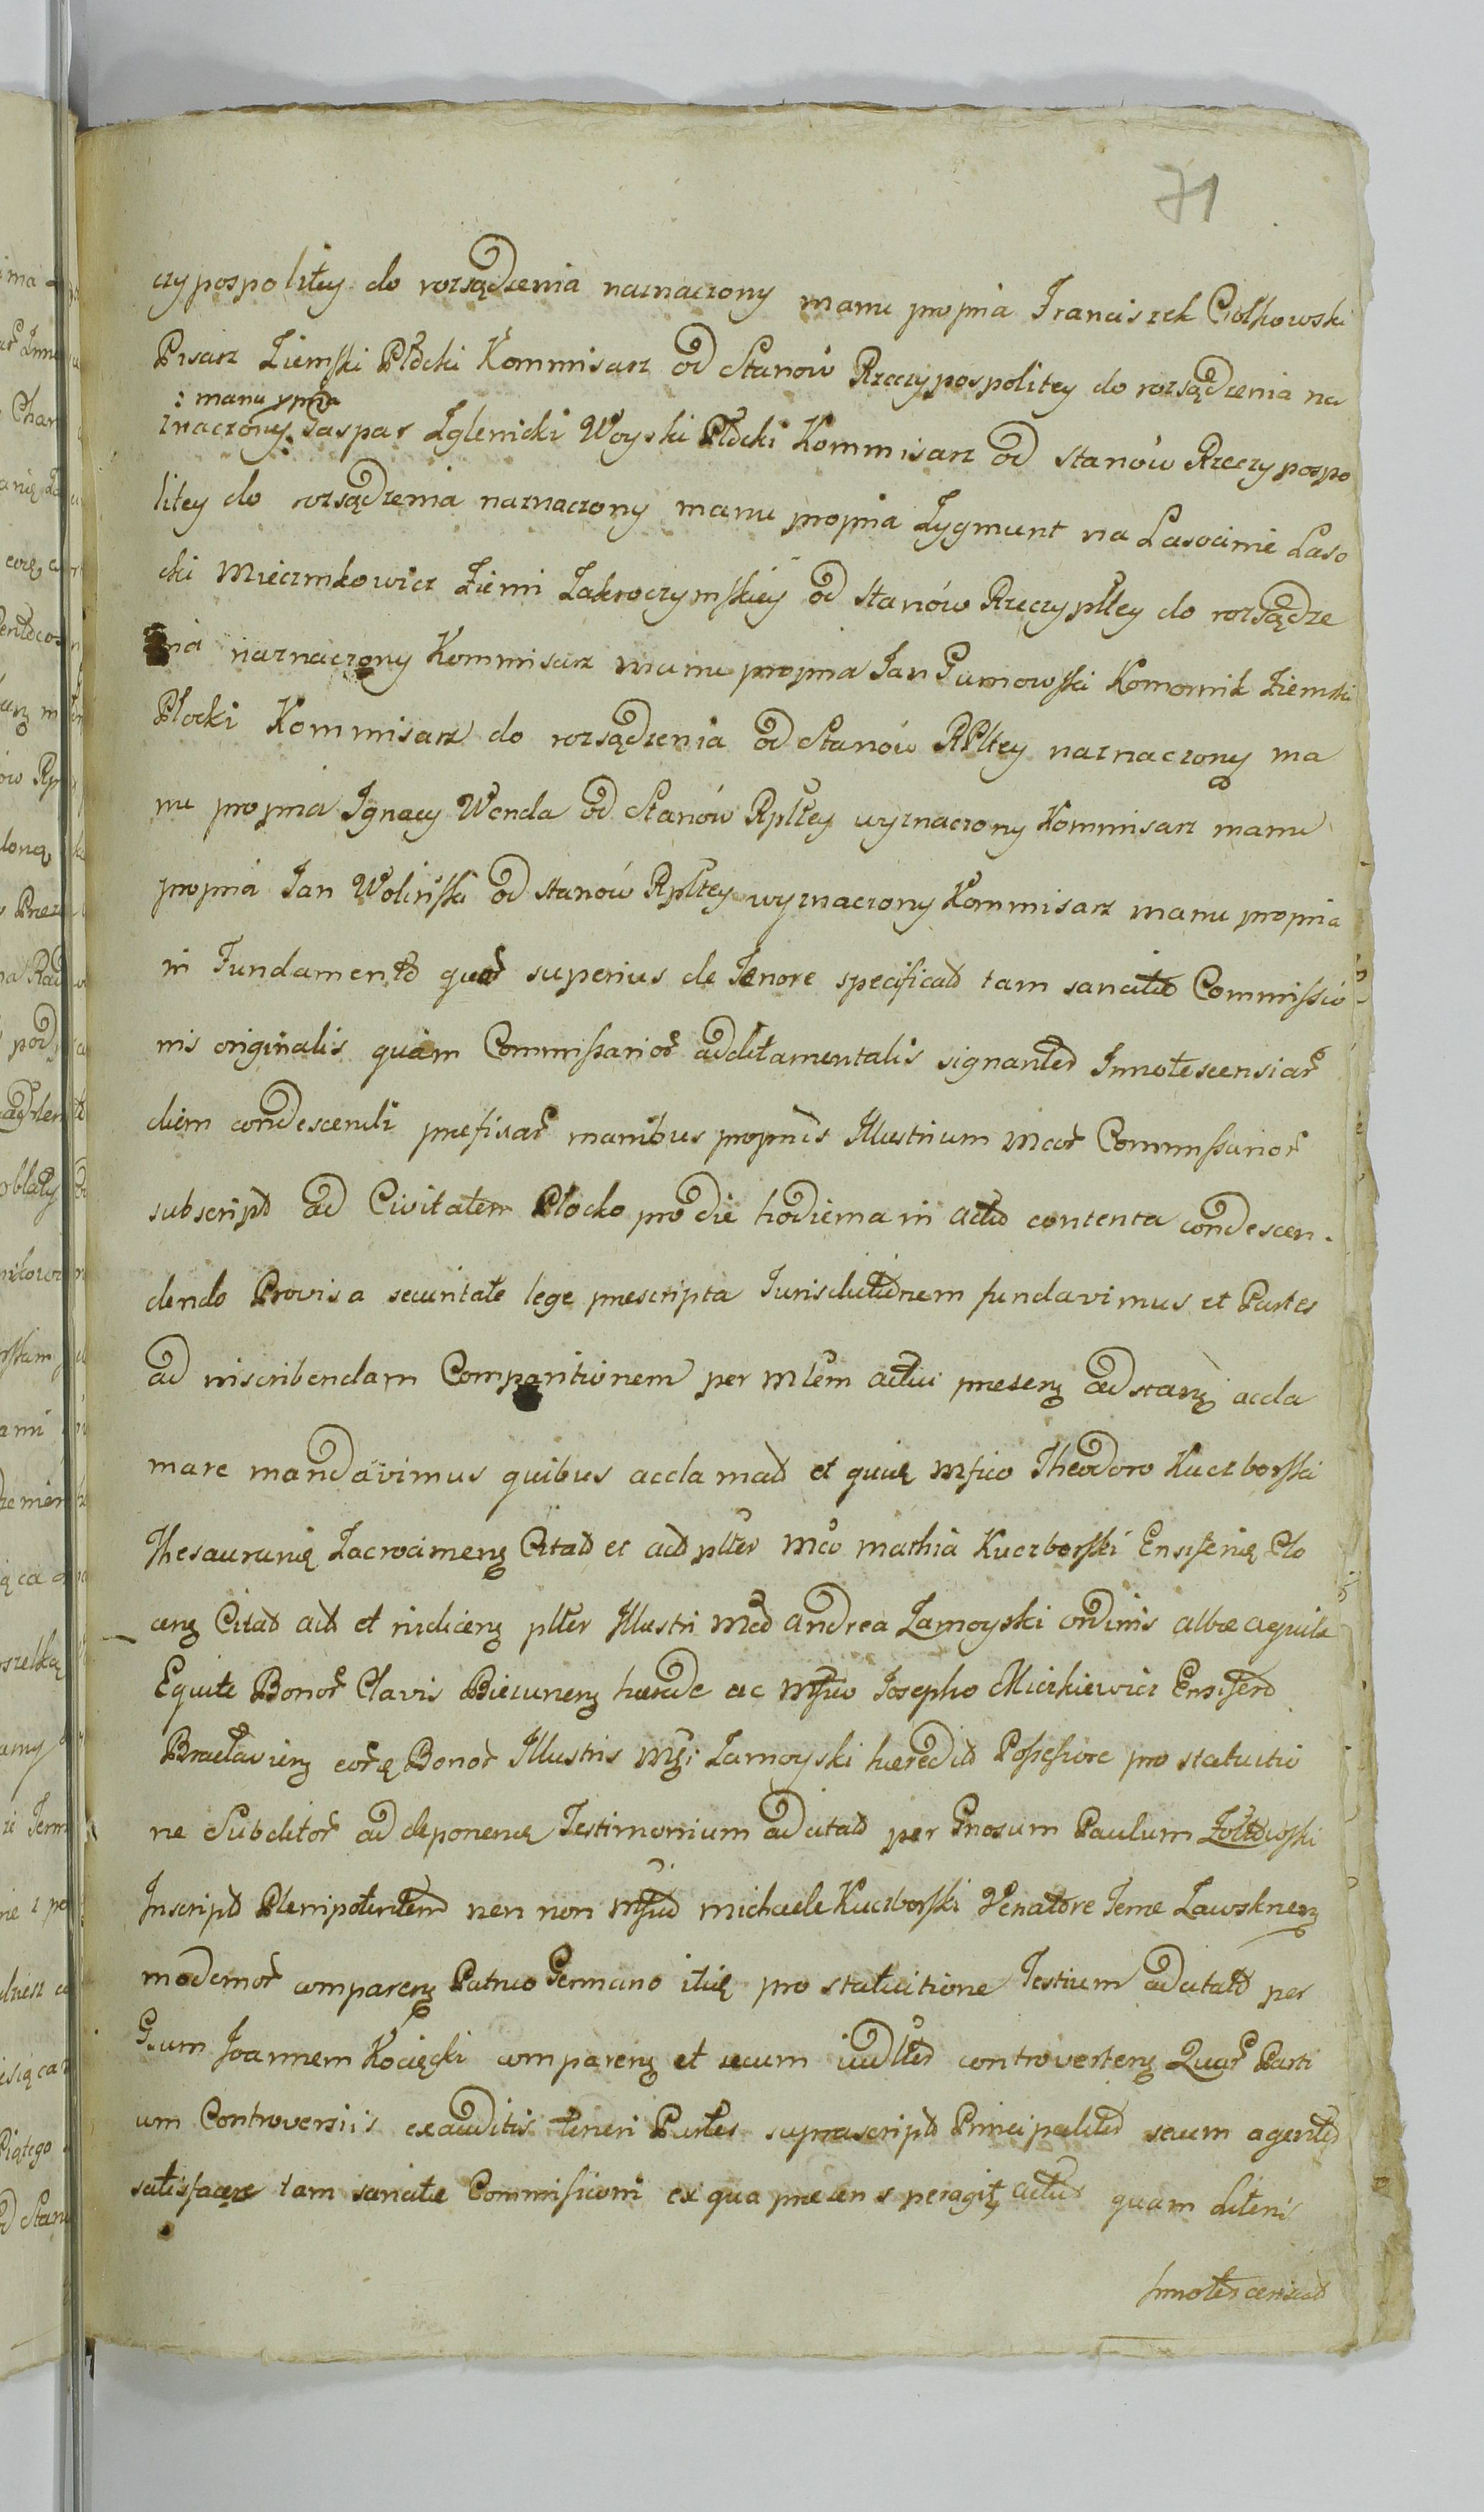 71
czypospolitey do rozsądzenia naznaczony manu propria Franciszek Ciołkowski
Pisarz Ziemski Płocki Kommisarz od Stanów Rzeczypospolitey do rozsądzenia na
: manu ppria
znaczony. Jaspar Zglenicki Woyski Płocki Kommisarz od stanów Rzeczypospo
litey do rozsądzenia naznaczony manu propria Zygmunt na Lasocinie Laso
cki Mieczmkowicz Ziemi Zakroczymskiey od stanów Rzeczyptey do rozsądze
nia naznaczony Kommisarz manu propria Jan Gumowski Komornik Ziemski
Płocki Kommisarz do rozsądzenia od Stanów RPltey naznaczony ma
nu propria Ignacy Wenda od Stanów Rpltey wyznaczony Kommisarz manu
propria Jan Woliński od stanów Rpltey wyznaczony Kommisarz manu propria
in Fundamento quor superius de Tenore specificat tam sancito Commissio
nis originalis quam Commissarior additamentalis signanter Innotescensiar
diem condescendi prefixar manibus propriis Illustrium Mcor Commissarior
subscript ad Civitatem Plocko pro die hodierna in actu contenta condescen-
dendo Provisa securitate lege prescripta Jurisdictionem fundavimus et Partes
ad inscribendam Comparitionem per Mlem actui presenz adstanz accla
mare mandavimus quibus acclamat et quidę Mfico Theodoro Kuczborski
Thesaurarię Zacrocimenz Citat et act plter Mco Mathia Kuczborski Ensiferię Plo
cenz Citat act et indicenz plter Illustri Mco Andrea Zamoyski ordinis albæ aquilæ
Equite Bonor Clavis Biezunenz hærede ac Mfico Josepho Mickiewicz Ensifero
Bracłavienz eorę Bonor Illustris Mgi Zamoyski hæredit Possessore pro statuitio
ne Subditor ad deponenę Testimonium adcitat per Gnosum Paulum Żółtowski
Inscript Plenipotentem nen non Mfico Michaele Kuczborski Venatore Terræ Zawsknenz
modernor comparenz Patruo Germano itię pro statuitione Testium adcitat per
G.um Joannem Kocięcki comparenz et secum iudlter controvertenz Quar Parti
um Controversiis exauditis teneri Partes suprascript Principaliter secum agenter
satisfacere tam sancitæ Commissioni ex qua presens peragitz actus quam literis
Innotescensiar